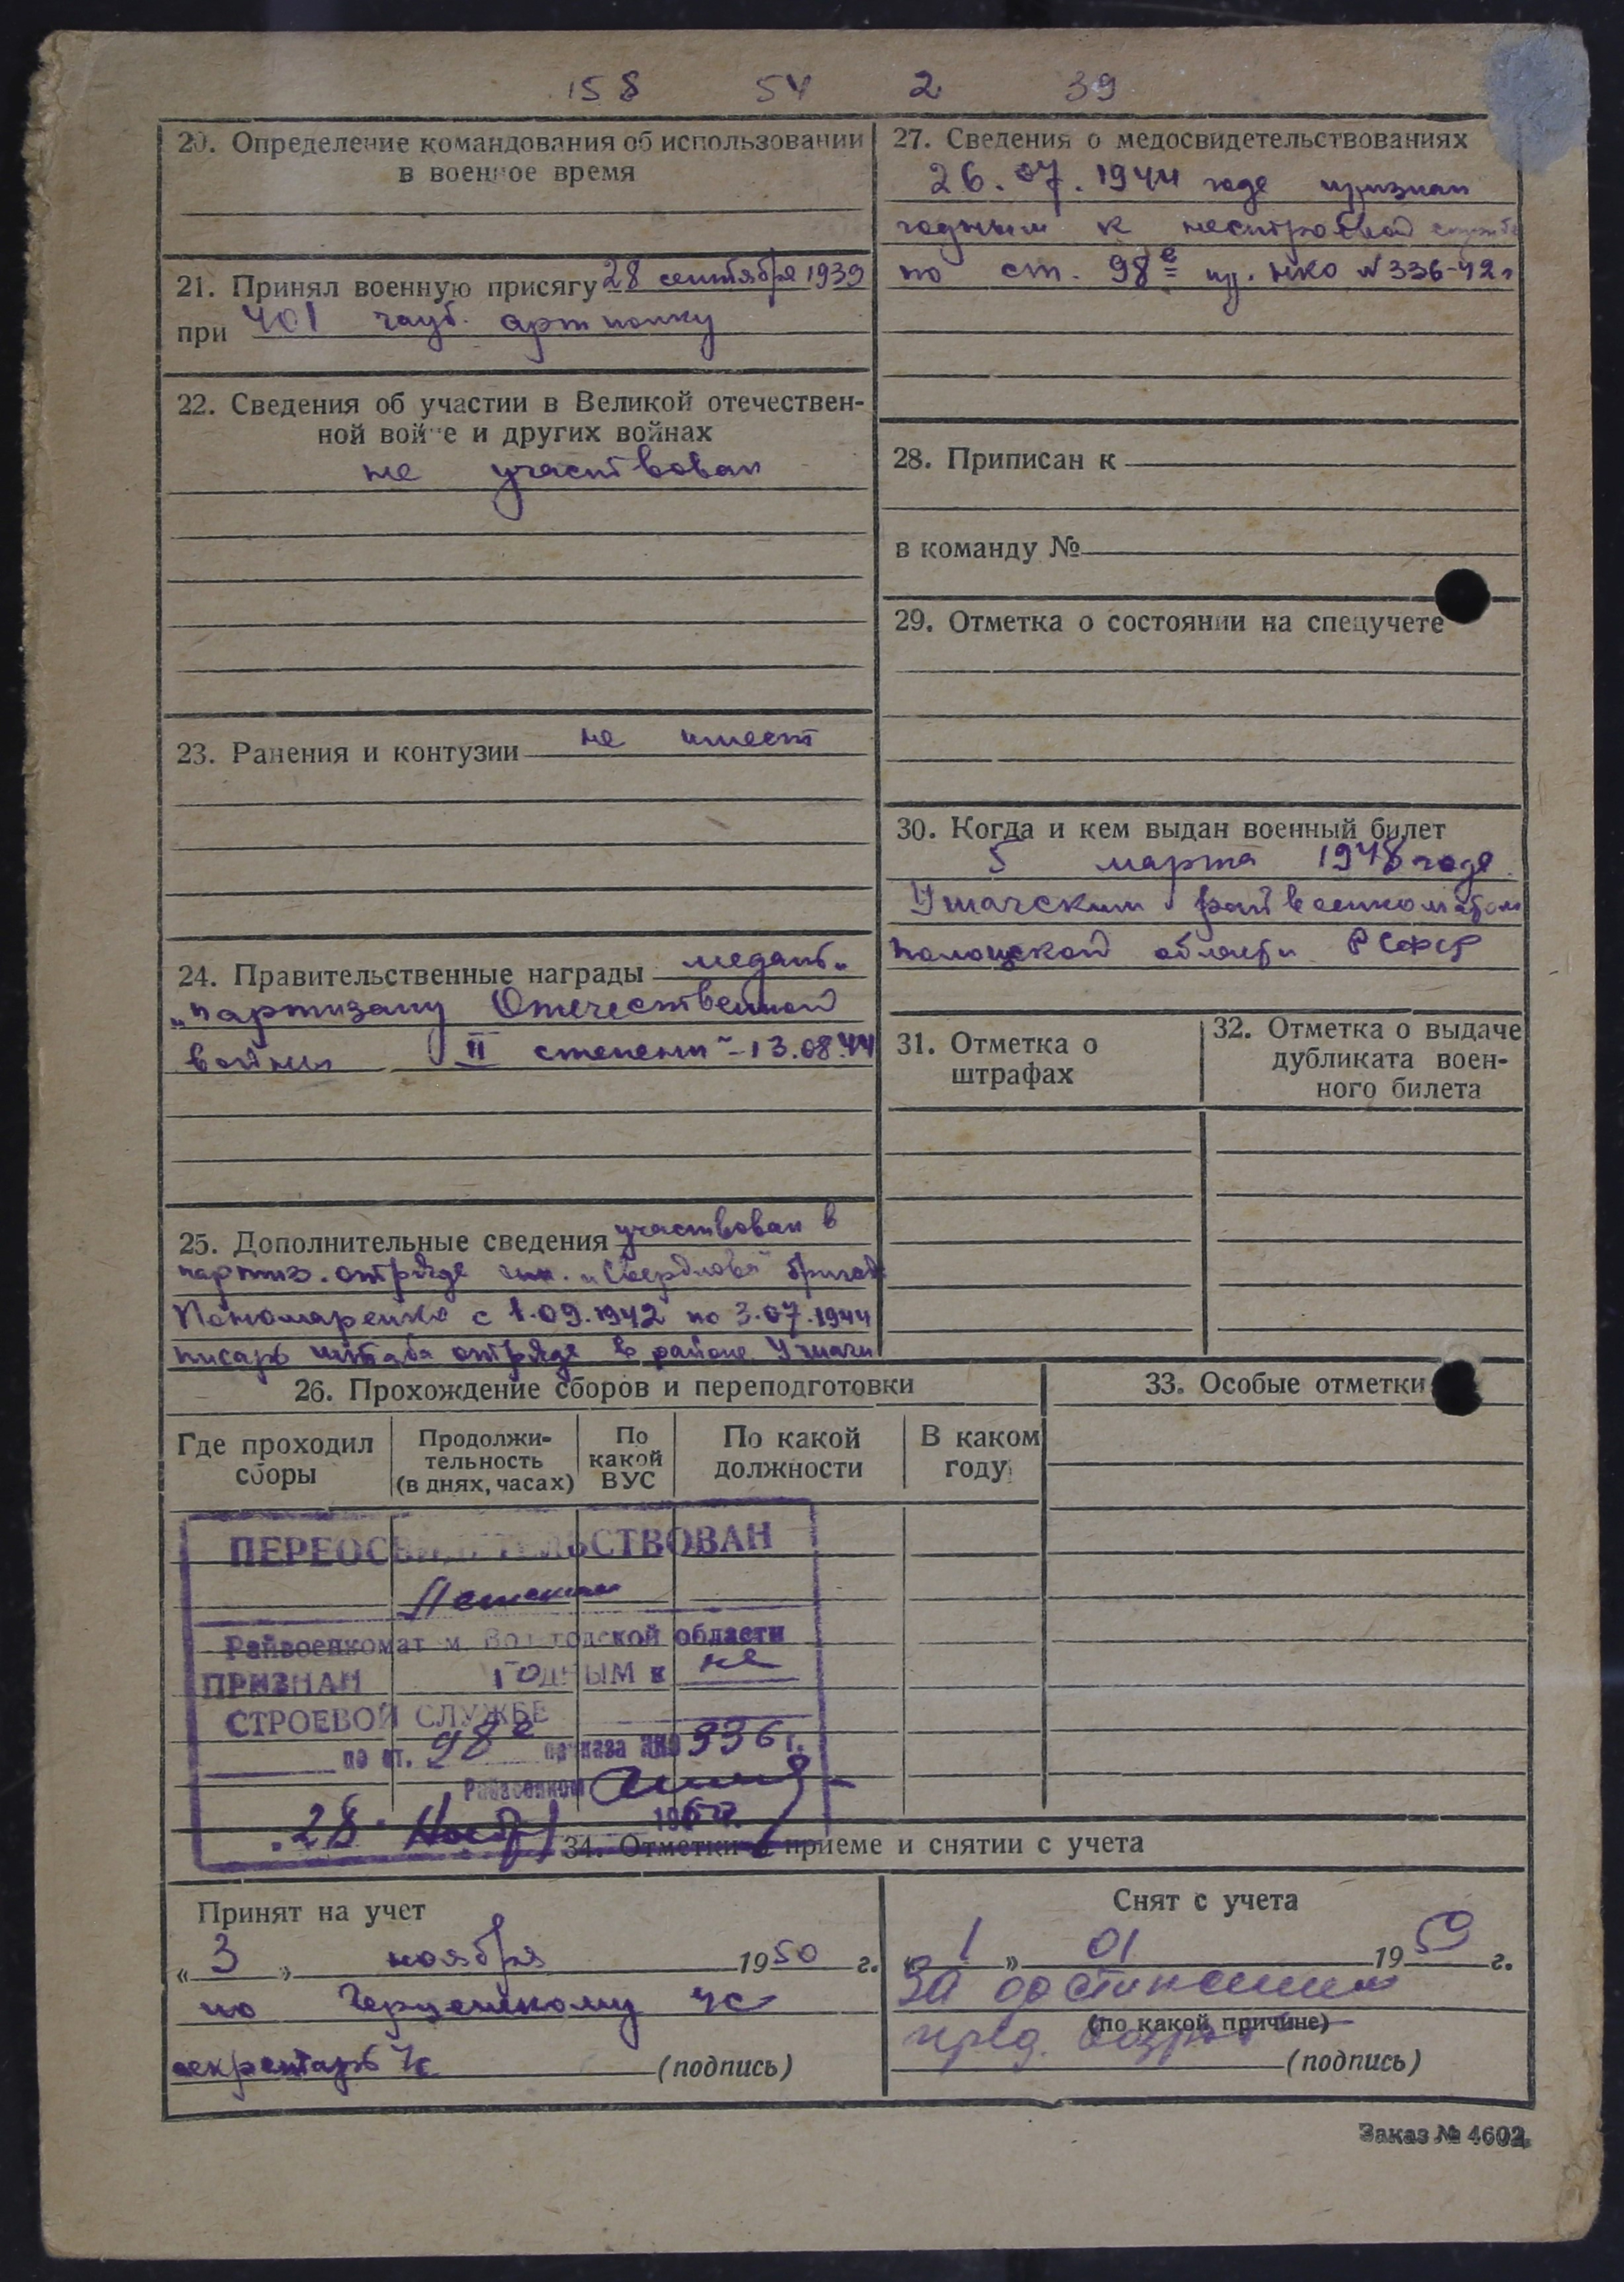 158 54 2 39
20. Определение командования об использовании
в военное время
21. Принял военную присягу 28 сентября 1939
при 401 гауб. артполку
22. Сведения об участии в Великой отечествен-
ной войне и других войнах
не участвовал
23. Ранения и контузии не имеет
24. Правительственные награды медаль
„Партизану Отечественной
войны II степени" – 13.08.44
25. Дополнительные сведения участвовал в
партиз. отряде им. „Свердлова" бригад
Пономаренко с 1.09.1942 по 3.07.1944
писарь штаба отряда в районе Ушачи
27. Сведения о медосвидетельствованиях
26.07.1944 года признан
годным к нестроевой службе
по ст. 98е пр. НКО №336-42г
28. Приписан к
в команду №
29. Отметка о состоянии на спецучете
30. Когда и кем выдан военный билет
5 марта 1948 года
Ушачским райвоенкоматом
Полоцкой области РСФСР
31. Отметка о
штрафах
32. Отметка о выдаче
дубликата воен-
ного билета
26. Прохождение сборов и переподготовки
Где проходил
сборы
Продолжи-
тельность
(в днях, часах)
По
какой
ВУС
По какой
должности
В каком
году
33. Особые отметки
ПЕРЕОСВИДЕТЕЛЬСТВОВАН
Райвоенкомат м. Вологодской области
ПРИЗНАН ГОДНЫМ к не
СТРОЕВОЙ СЛУЖБЕ
по ст. 98е приказа НКО 336 г.
Райвоенком
28 Нояб 195
34. Отметки о приеме и снятии с учета
Принят на учет
„3" ноября 1950 г.
по ус
секретарь ус (подпись)
Снят с учета
„1" 01 1959 г.
за достижением
(по какой причине)
пред. возр
(подпись)
Заказ № 4602.